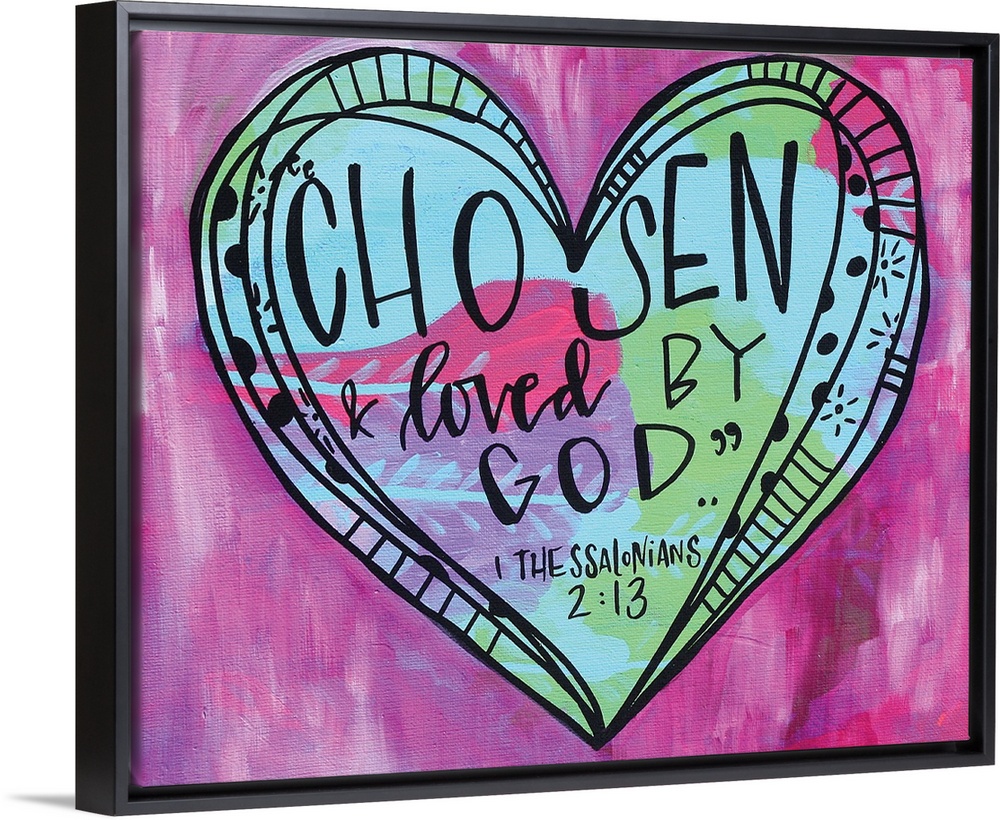 CHOSEN
& loved BY
GOD"
1 THESSALONIANS
2:13